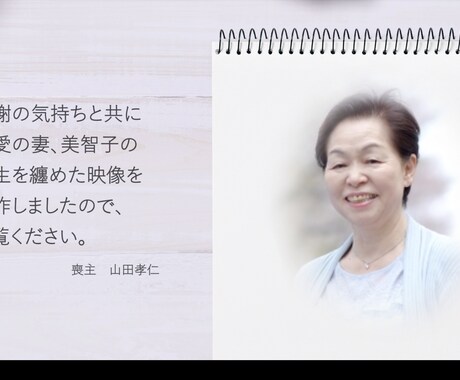 謝の気持ちと共に
愛の妻、美智子の
生を纏めた映像を
作しましたので、
覧ください。
喪主　山田孝仁